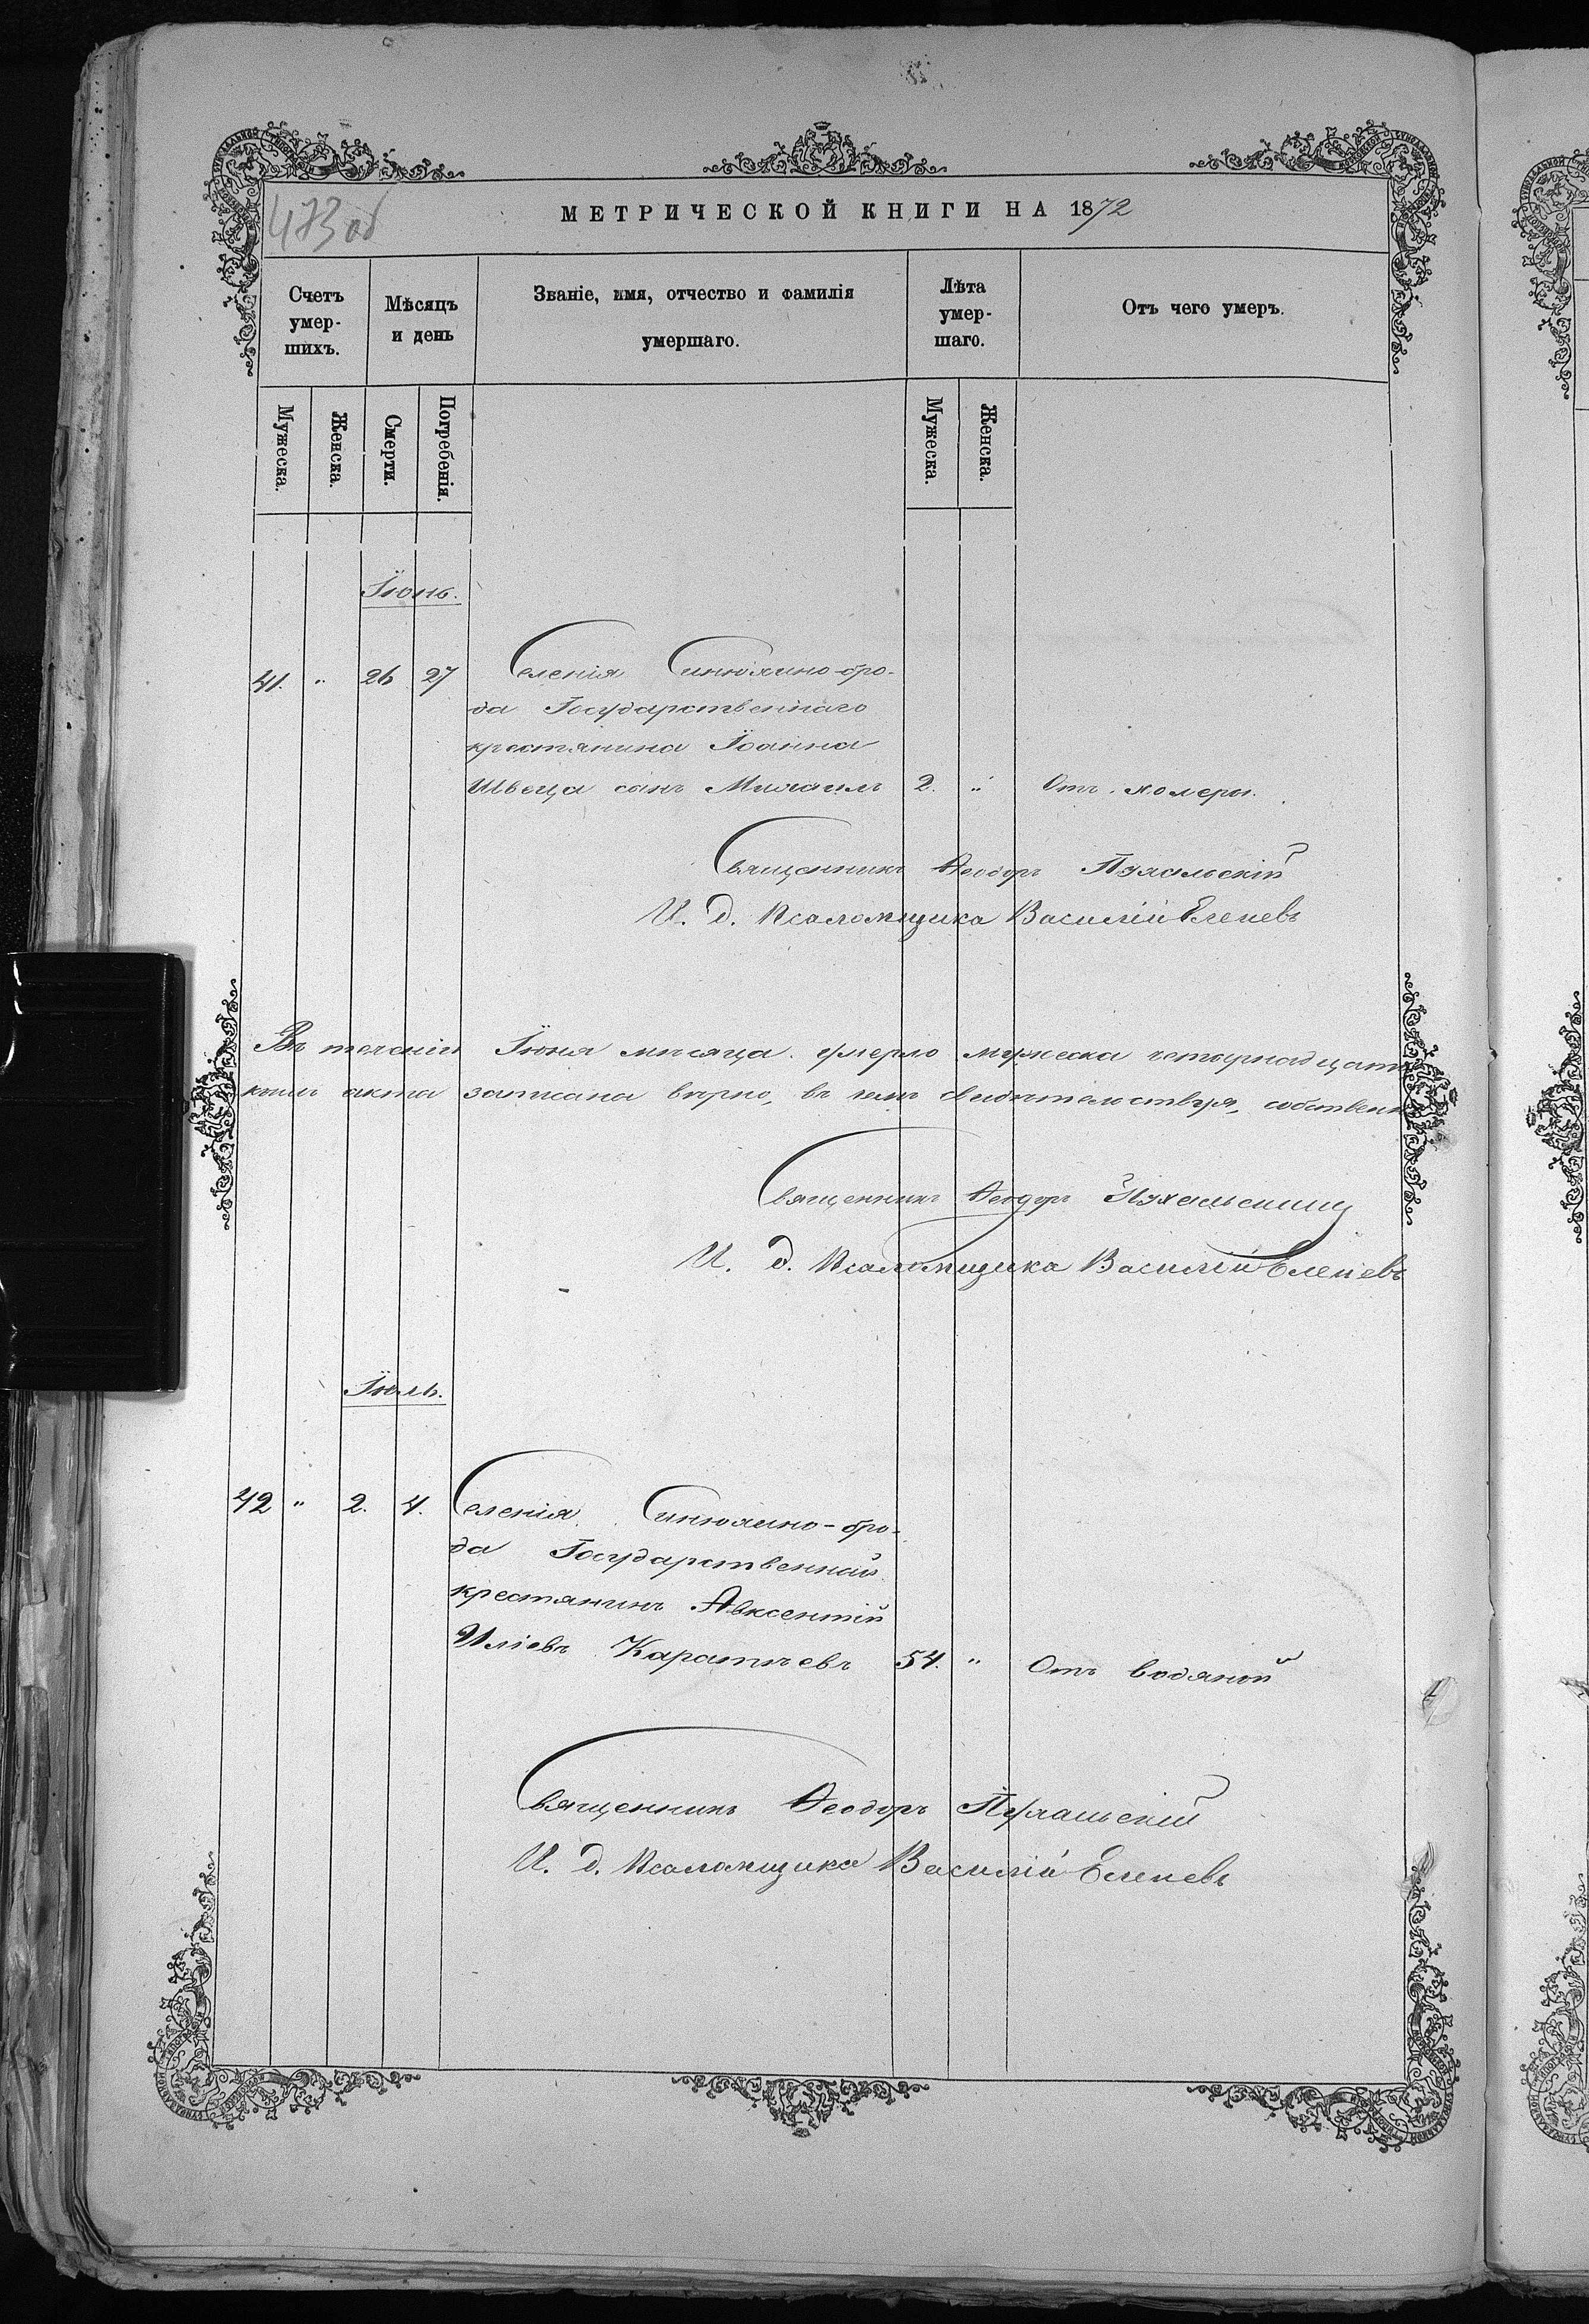 473 об
МЕТРИЧЕСКОЙ КНИГИ НА 1872
Счетъ умер-шихъ.
Мѣсяцъ и день
Званіе, имя, отчество и фамилія умершаго.
Лѣта умер-шаго.
Отъ чего умеръ.
Мужеска.
Женска.
Смерти.
Погребенія.
Мужеска.
Женска.
Іюнь.
41. " 26 27 Селенія Синюхино-бро-
да Государственнаго
крестянина Іоанна
Швеца сынъ Михаилъ 2. " Отъ холеры.
Священникъ Ѳеодоръ Пухальскій
И. д. Псаломщика Василій Еленевъ
Въ теченіи Іюня мѣсяца умерло мужеска четырнадцать
акта записана вѣрно, въ чемъ свидѣтельствуя,
Священникъ Ѳеодоръ Пухальскій
И. д. Псаломщика Василій Еленевъ
Іюль.
42 " 2. 4. Селенія Синюхино-бро-
да Государственный
крестянинъ Авксентій
Иліевъ Каратѣевъ 54. " Отъ водяной
Священникъ Ѳеодоръ Пухальскій
И. д. Псаломщика Василій Еленевъ